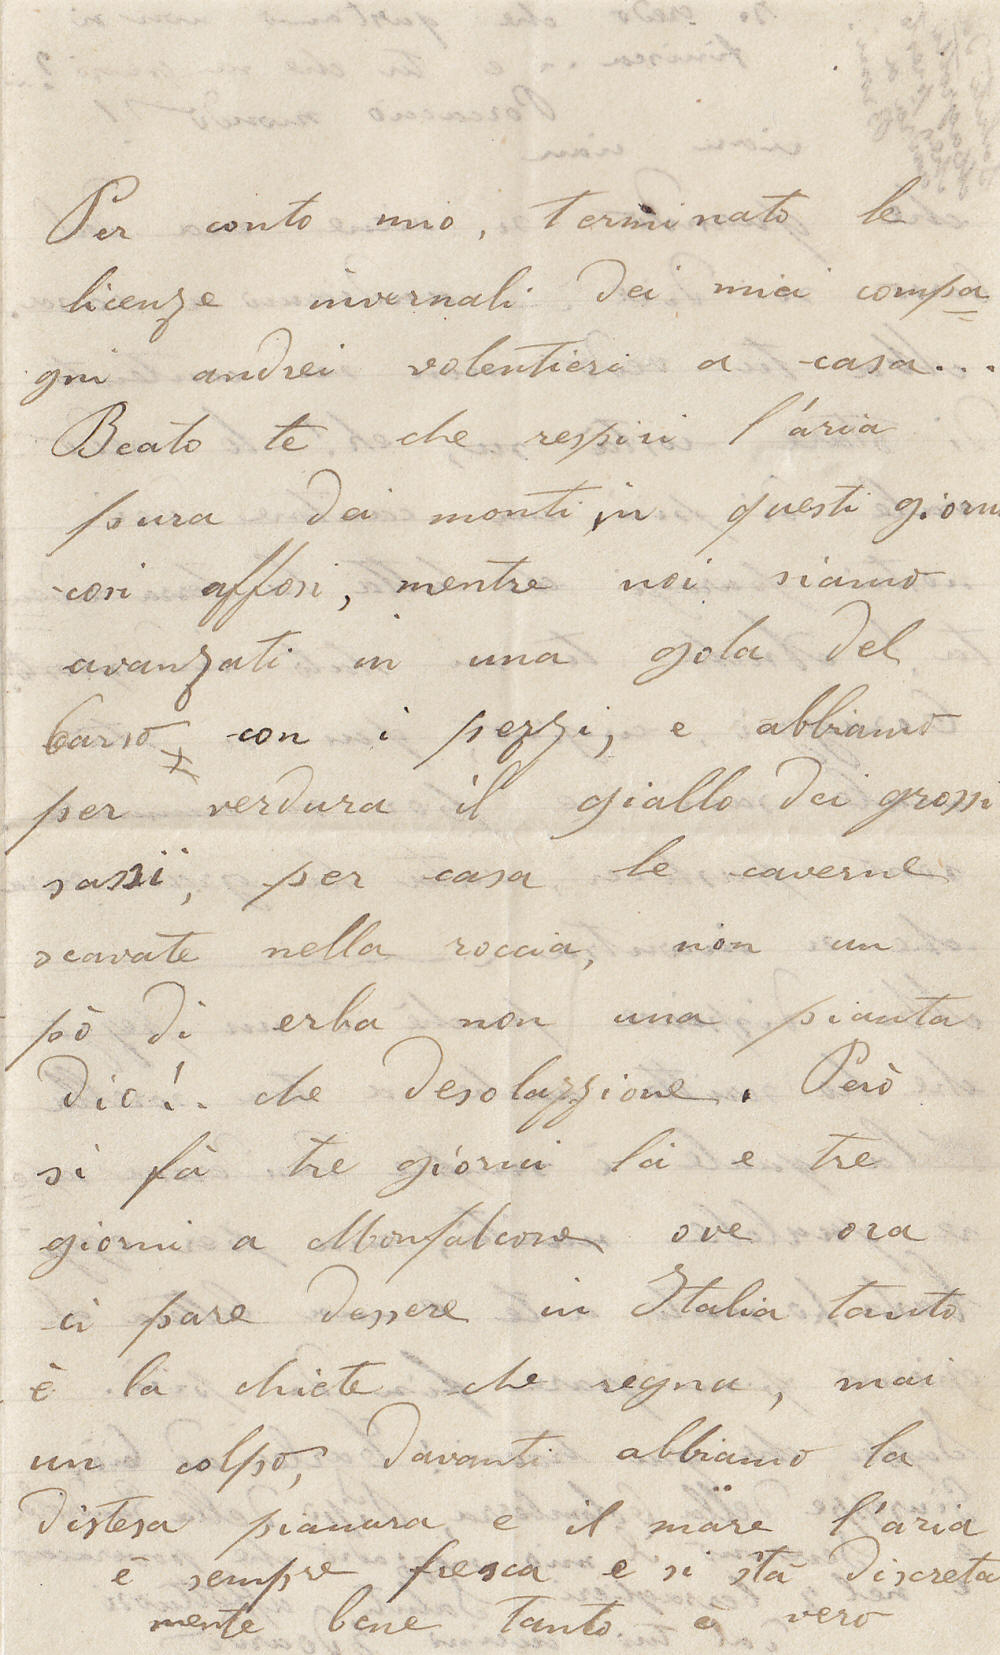 Per conto mio, terminato le
licenze invernali dei miei compa=
gni andrei volentieri a casa...
Beato te che respiri l'aria
pura dei monti, in questi giorni
cosi affosi, mentre noi siamo
avanzati in una gola del
Carso con i pezzi, e abbiamo
per verdura il giallo dei grossi
sassi, per casa le caverne
scavate nella roccia, non un
pò di erba non una pianta
dio!.. che desolazzione. Però
si fà tre giorni là e tre
giorni a Monfalcone ove ora
ci pare dessere in Italia tanto
è la chiete che regna, mai
un colpo, davanti abbiamo la
distesa pianura e il mare l'aria
è sempre fresca e si stà discreta
mente bene tanto è vero